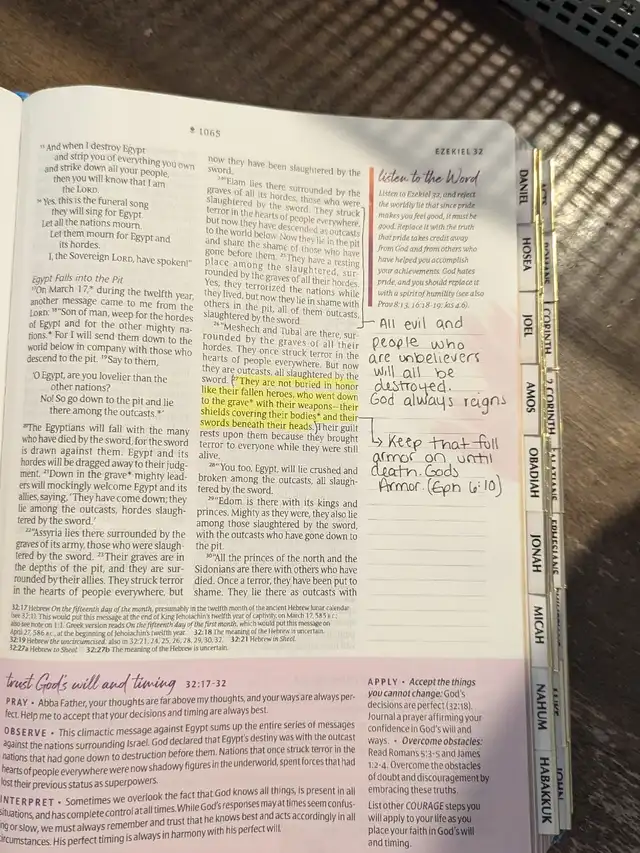 1065
EZEKIEL 32
15 And when I destroy Egypt
and strip you of everything you own
and strike down all your people,
then you will know that I am
the LORD.
16 Yes, this is the funeral song
they will sing for Egypt.
Let all the nations mourn.
Let them mourn for Egypt and
its hordes.
I, the Sovereign LORD, have spoken!"
Egypt Falls into the Pit
17 On March 17,* during the twelfth year,
another message came to me from the
LORD: 18 "Son of man, weep for the hordes
of Egypt and for the other mighty na-
tions.* For I will send them down to the
world below in company with those who
descend to the pit. 19 Say to them,
'O Egypt, are you lovelier than the
other nations?
No! So go down to the pit and lie
there among the outcasts.*'
20 The Egyptians will fall with the many
who have died by the sword, for the sword
is drawn against them. Egypt and its
hordes will be dragged away to their judg-
ment. 21 Down in the grave* mighty lead-
ers will mockingly welcome Egypt and its
allies, saying, 'They have come down; they
lie among the outcasts, hordes slaugh-
tered by the sword.'
22 "Assyria lies there surrounded by the
graves of its army, those who were slaugh-
tered by the sword. 23 Their graves are in
the depths of the pit, and they are sur-
rounded by their allies. They struck terror
in the hearts of people everywhere, but
now they have been slaughtered by the
sword.
24 "Elam lies there surrounded by the
graves of all its hordes, those who were
slaughtered by the sword. They struck
terror in the hearts of people everywhere,
but now they have descended as outcasts
to the world below. Now they lie in the pit
and share the shame of those who have
gone before them. 25 They have a resting
place among the slaughtered, sur-
rounded by the graves of all their hordes.
Yes, they terrorized the nations while
they lived, but now they lie in shame with
others in the pit, all of them outcasts,
slaughtered by the sword.
26 "Meshech and Tubal are there, sur-
rounded by the graves of all their
hordes. They once struck terror in the
hearts of people everywhere. But now
they are outcasts, all slaughtered by the
sword. 27 They are not buried in honor
like their fallen heroes, who went down
to the grave* with their weapons—their
shields covering their bodies* and their
swords beneath their heads. Their guilt
rests upon them because they brought
terror to everyone while they were still
alive.
28 "You too, Egypt, will lie crushed and
broken among the outcasts, all slaugh-
tered by the sword.
29 "Edom is there with its kings and
princes. Mighty as they were, they also lie
among those slaughtered by the sword,
with the outcasts who have gone down to
the pit.
30 "All the princes of the north and the
Sidonians are there with others who have
died. Once a terror, they have been put to
shame. They lie there as outcasts with
listen to the Word
Listen to Ezekiel 32, and reject
the worldly lie that since pride
makes you feel good, it must be
good. Replace it with the truth
that pride takes credit away
from God and from others who
have helped you accomplish
your achievements. God hates
pride, and you should replace it
with a spirit of humility (see also
Prov 8:13, 16:18-19; Jas 4:6).
All evil and
people who
are unbelievers
will all be
destroyed.
God always reigns
Keep that full
armor on until
death. Gods
Armor. (Eph 6:10)
32:17 Hebrew On the fifteenth day of the month, presumably in the twelfth month of the ancient Hebrew lunar calendar
(see 32:1). This would put this message at the end of King Jehoiachin's twelfth year of captivity, on March 17, 585 B.C.;
also see note on 1:1. Greek version reads On the fifteenth day of the first month, which would put this message on
April 27, 586 B.C., at the beginning of Jehoiachin's twelfth year. 32:18 The meaning of the Hebrew is uncertain.
32:19 Hebrew the uncircumcised; also in 32:21, 24, 25, 26, 28, 29, 30, 32. 32:21 Hebrew in Sheol.
32:27a Hebrew to Sheol. 32:27b The meaning of the Hebrew is uncertain.
trust God's will and timing 32:17-32
PRAY • Abba Father, your thoughts are far above my thoughts, and your ways are always per-
fect. Help me to accept that your decisions and timing are always best.
OBSERVE • This climactic message against Egypt sums up the entire series of messages
against the nations surrounding Israel. God declared that Egypt's destiny was with the outcast
nations that had gone down to destruction before them. Nations that once struck terror in the
hearts of people everywhere were now shadowy figures in the underworld, spent forces that had
lost their previous status as superpowers.
INTERPRET • Sometimes we overlook the fact that God knows all things, is present in all
situations, and has complete control at all times. While God's responses may at times seem confus-
ing or slow, we must always remember and trust that he knows best and acts accordingly in all
circumstances. His perfect timing is always in harmony with his perfect will.
APPLY • Accept the things
you cannot change: God's
decisions are perfect (32:18).
Journal a prayer affirming
your confidence in God's will and
ways. • Overcome obstacles:
Read Romans 5:3-5 and James
1:2-4. Overcome the obstacles
of doubt and discouragement by
embracing these truths.
List other COURAGE steps you
will apply to your life as you
place your faith in God's will
and timing.
DANIEL
HOSEA
JOEL
AMOS
OBADIAH
JONAH
MICAH
NAHUM
HABAKKUK
ACTS
ROMANS
1 CORINTH
2 CORINTH
EPHESIANS